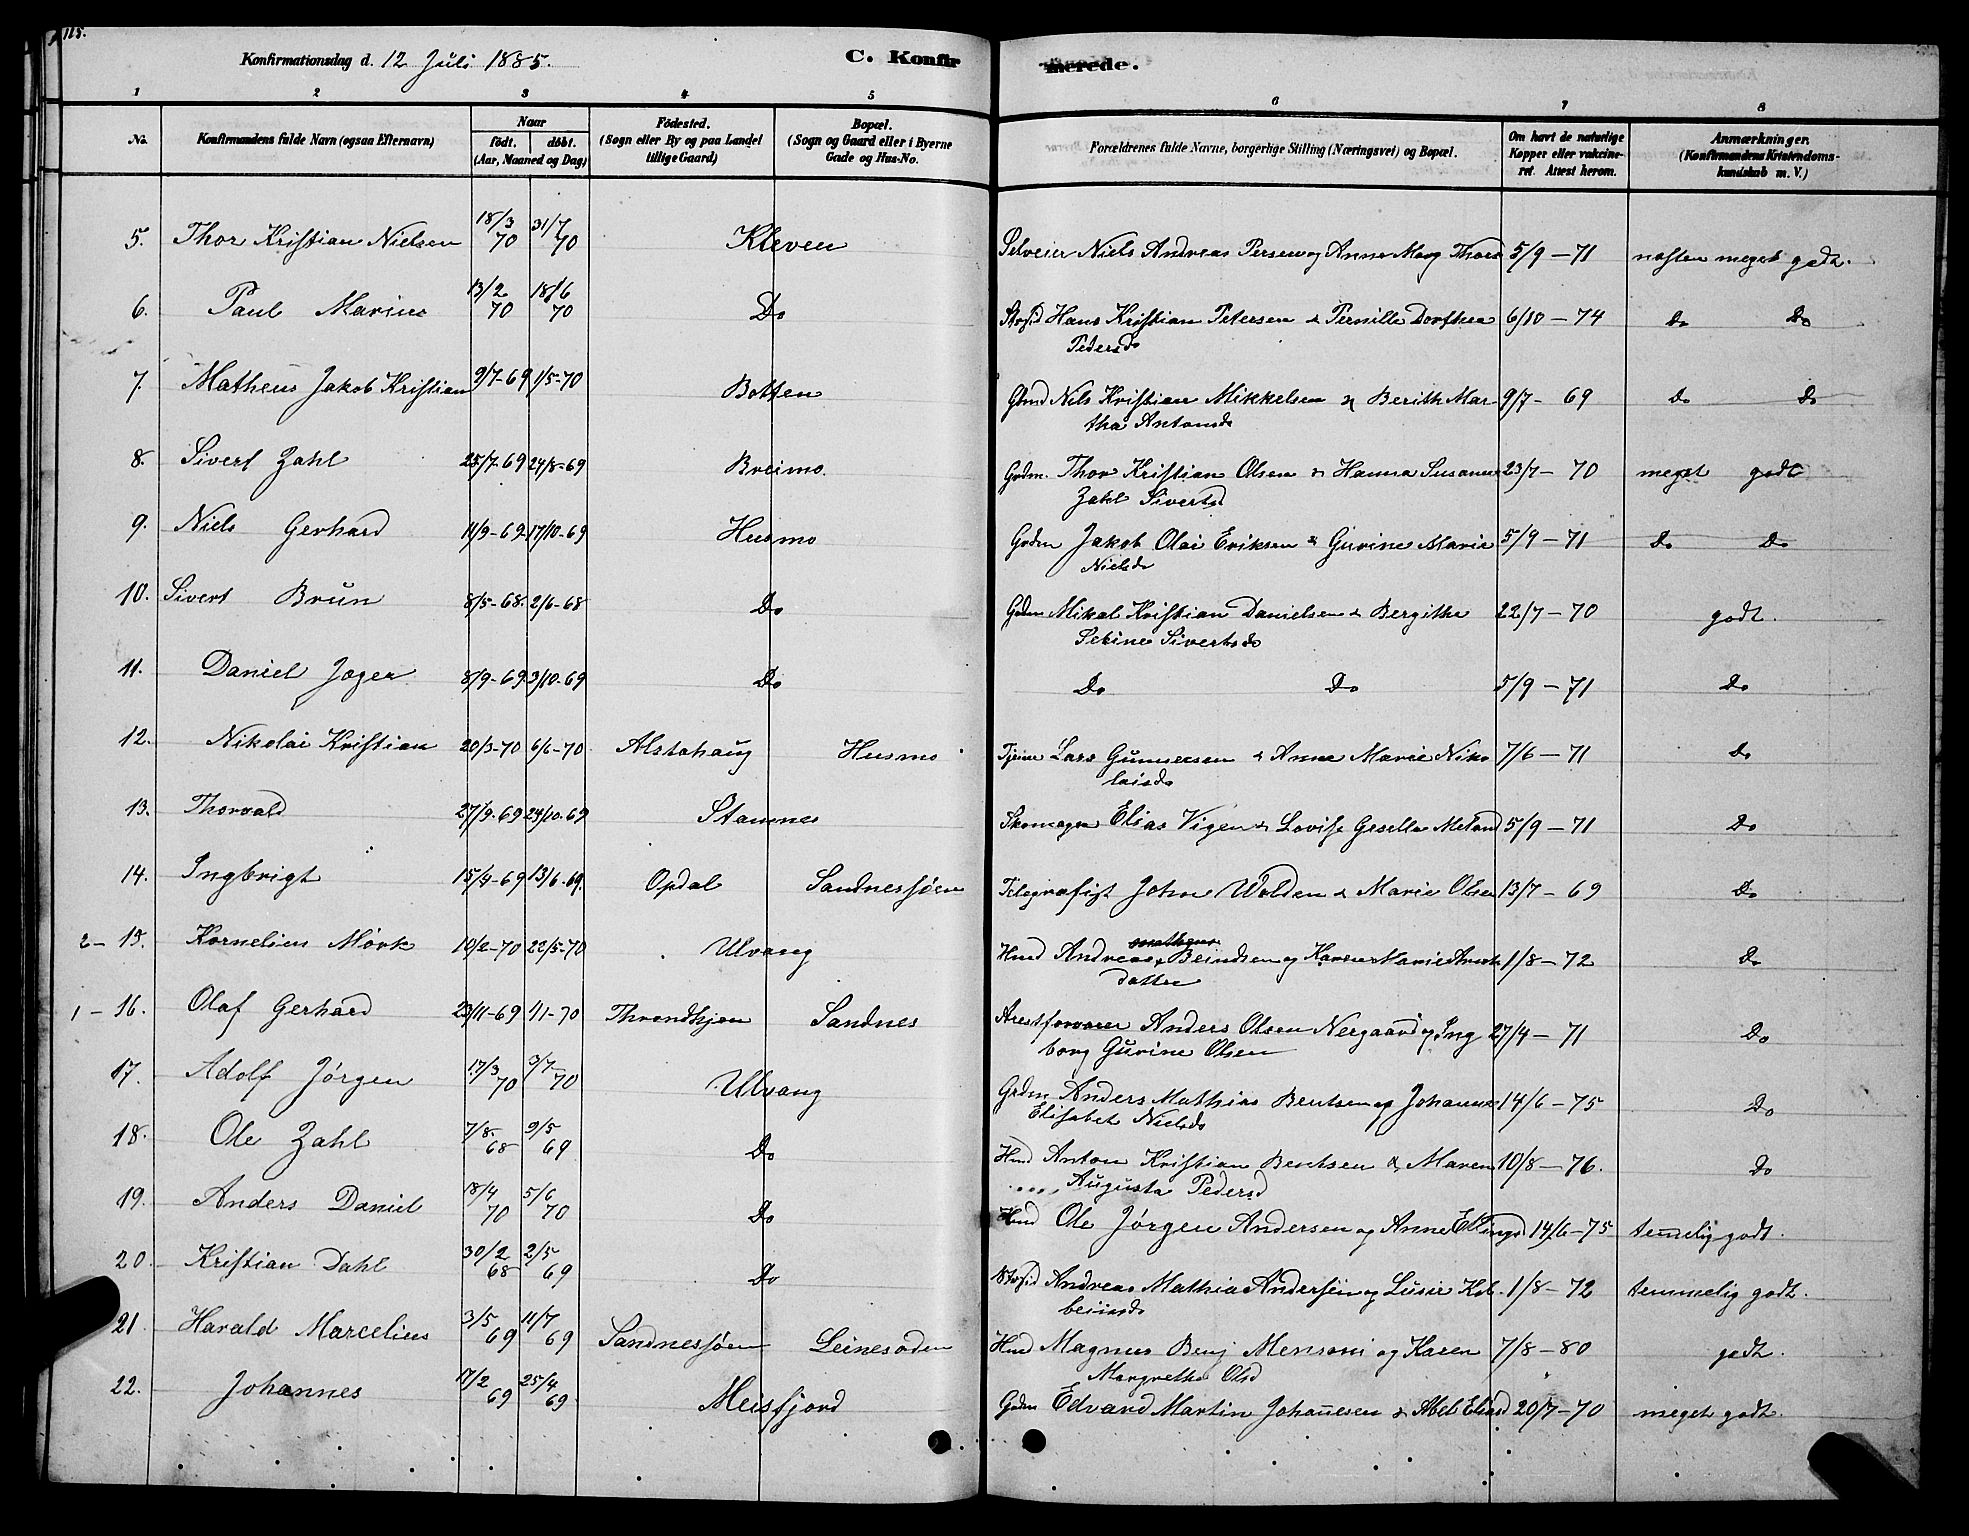 115.
Konfirmationsdag d. 12 Juli 1885.
C. Konfirmerede.
1 2 3 4 5 6 7 8
No. Konfirmandens fulde Navn (ogsaa Efternavn) Naar født. døbt. (Aar, Maaned og Dag) Fødested. (Sogn eller By og paa Landet tillige Gaard) Bopæl. (Sogn og Gaard eller i Byerne Gade og Hus-No. Forældrenes fulde Navne, borgerlige Stilling (Næringsvei) og Bopæl. Om havt de naturlige Kopper eller vakcineret. Attest herom. Anmærkninger. (Konfirmandens Kristendomskundskab m. V.)
5. Thor Kristian Nielsen 18/3 70 31/7 70 Kleven Selveier Niels Andreas Persen og Anne Marg Thors 5/9 - 71 næsten meget godt.
6. Paul Marius 13/2 70 18/6 70 Do Hans Kristian Petersen & Pernille Dorthea 6/10 - 74 Do Do
Pedersd
7. Matheus Jakob Kristian 9/7-69 1/5-70 Botten Gbmd Nils Kristian Mikkelsen & Berith Mar- 9/7 - 69 Do Do
tha Antonsd
8. Sivert Zahl 25/7-69 24/8-69 Breimo Grdm. Thor Kristian Olsen & Hanna Susanne 23/7 - 70 meget godt
Zahl Sivertsd
9. Niels Gerhard 11/9-69 17/10-69 Husmo Grdm Jakob Olai Eriksen & Gurine Marie 5/9 - 71 Do Do
Nielsd
10. Sivert Brun 8/5-68. 2/6-68 Do Grdm Mikal Kristian Danielsen & Bergithe 22/7 - 70 godt.
Sivertsd
11. Daniel Jæger 8/9-69 3/10-69 Do Do Do 5/9 - 71 Do
12. Nikolai Kristian 20/3-70 6/6-70 Alstahaug Husmo Lars Gunnersen & Anne Marie Niko 7/6 - 71 Do
laisd
13. Thorvald 27/9-69 24/10-69 Stamnes Skomager Elias Vigen & Lovise Gesella 5/9 - 71 Do
14. Ingbrigt 15/4-69 13/6-69. Opdal Sandnessjøen Telegrafist John Wolden & Marie Olsen 13/7 - 69 Do
2- 15. Kornelius Mørk 10/2-70 22/5-70 Ulvang Hmd Andreas Beindsen og Karen Marie 1/8 - 72 Do
datter
1 - 16. Olaf Gerhard 23/11-69 1/1-70 Throndhjem Sandnes Arestforvarer Anders Olsen Nergaard og Ing 27/4 - 71 Do
borg Gurine Olsen
17. Adolf Jørgen 17/3 70 3/7 70 Ulvang Grdm Anders Mathias Bentsen og Johanne 14/6 - 75 Do
Elisabet Nielsd
18. Ole Zahl 7/8. 68 9/5 69 Do Hmd Anton Kristian Bentsen & Maren 10/8 - 76. Do
Augusta Pedersd
19. Anders Daniel 18/4 70 5/6 70 Do Hmd Ole Jørgen Andersen og Anne Ellingsd 14/6 - 75 temelig godt.
20. Kristian Dahl 30/2 68 2/5 69 Do Andreas Mathias Andersen og Lusie Kol- 1/8 - 72 temmelig godt.
beinsd
21. Harald Marcelius 3/5 69 11/7 69 Sandnessjøen Leinesodden Hmd Magnus Benj Monsen og Karen 7/8 - 80 godt.
Margrethe Olsd
22. Johannes 17/2 69 25/4 69 Meisfjord Grdm Edvard Martin Johannesen & Abel Eliasd 20/7 - 70 meget godt.